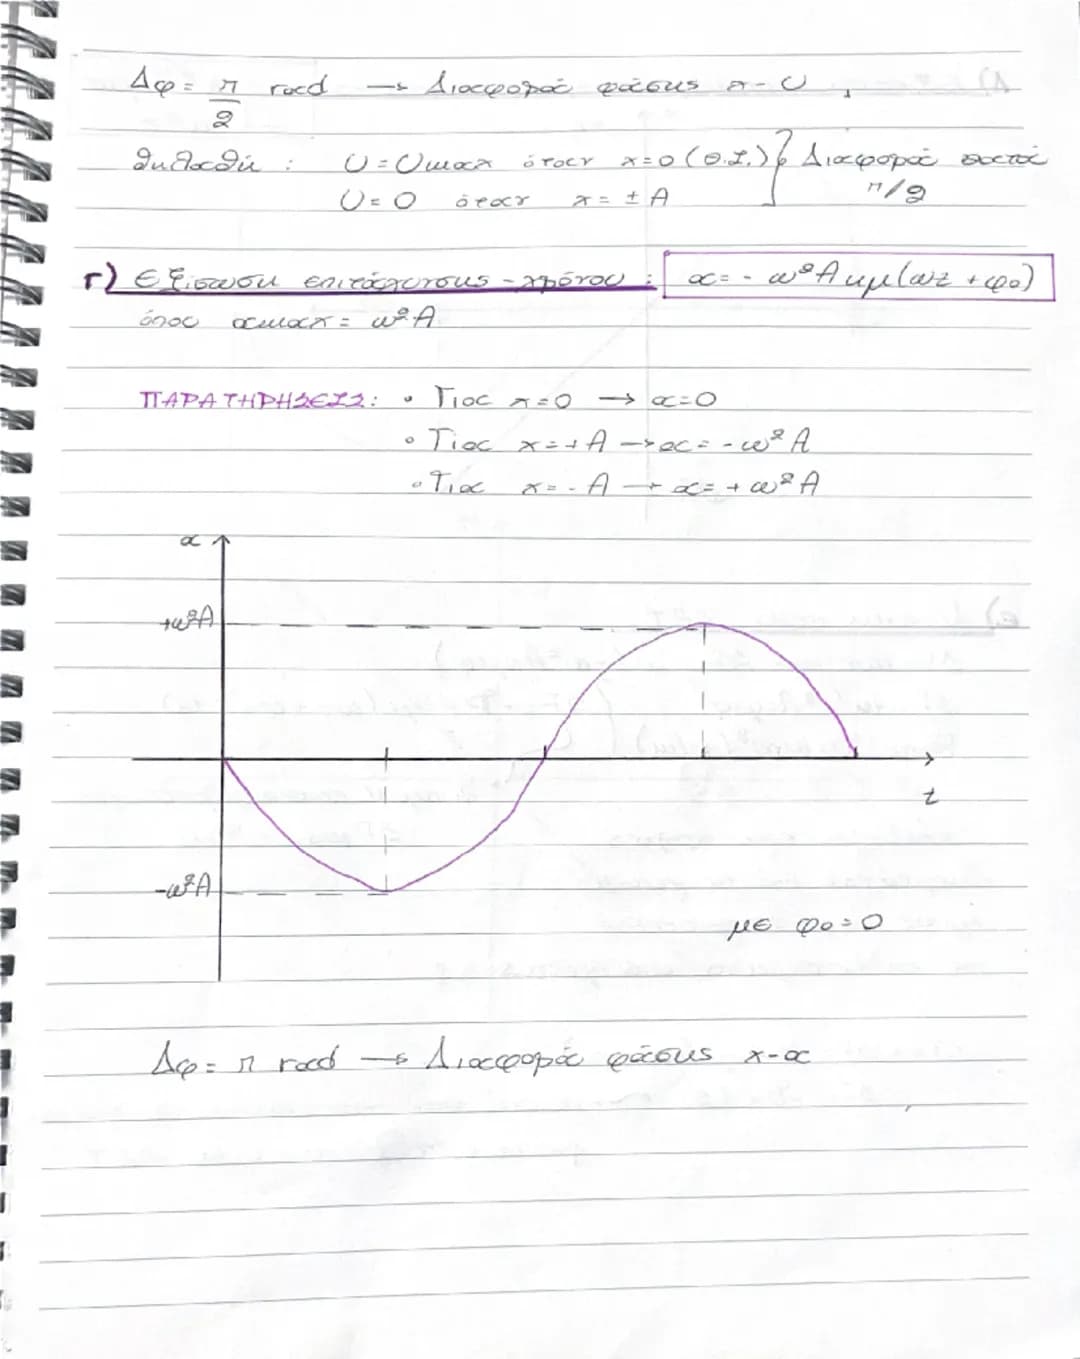 Δφ = π/2 rad → Διαφορά φάσης x-υ,
δηλαδή: υ = υmax όταν x=0 (Θ.Ι.) } Διαφορά κατά
υ = 0 όταν x = ± A π/2
Γ) Εξίσωση επιτάχυνσης - χρόνου: α = - ω²Aημ(ωt + φ₀)
όπου αmax = ω²·A
ΠΑΡΑΤΗΡΗΣΕΙΣ: • Για x=0 → α=0
• Για x=+A → α= -ω²A
• Για x=-A → α= +ω²A
α
+ω²A
t
-ω²A
με φ₀=0
Δφ = π rad → Διαφορά φάσης x-α